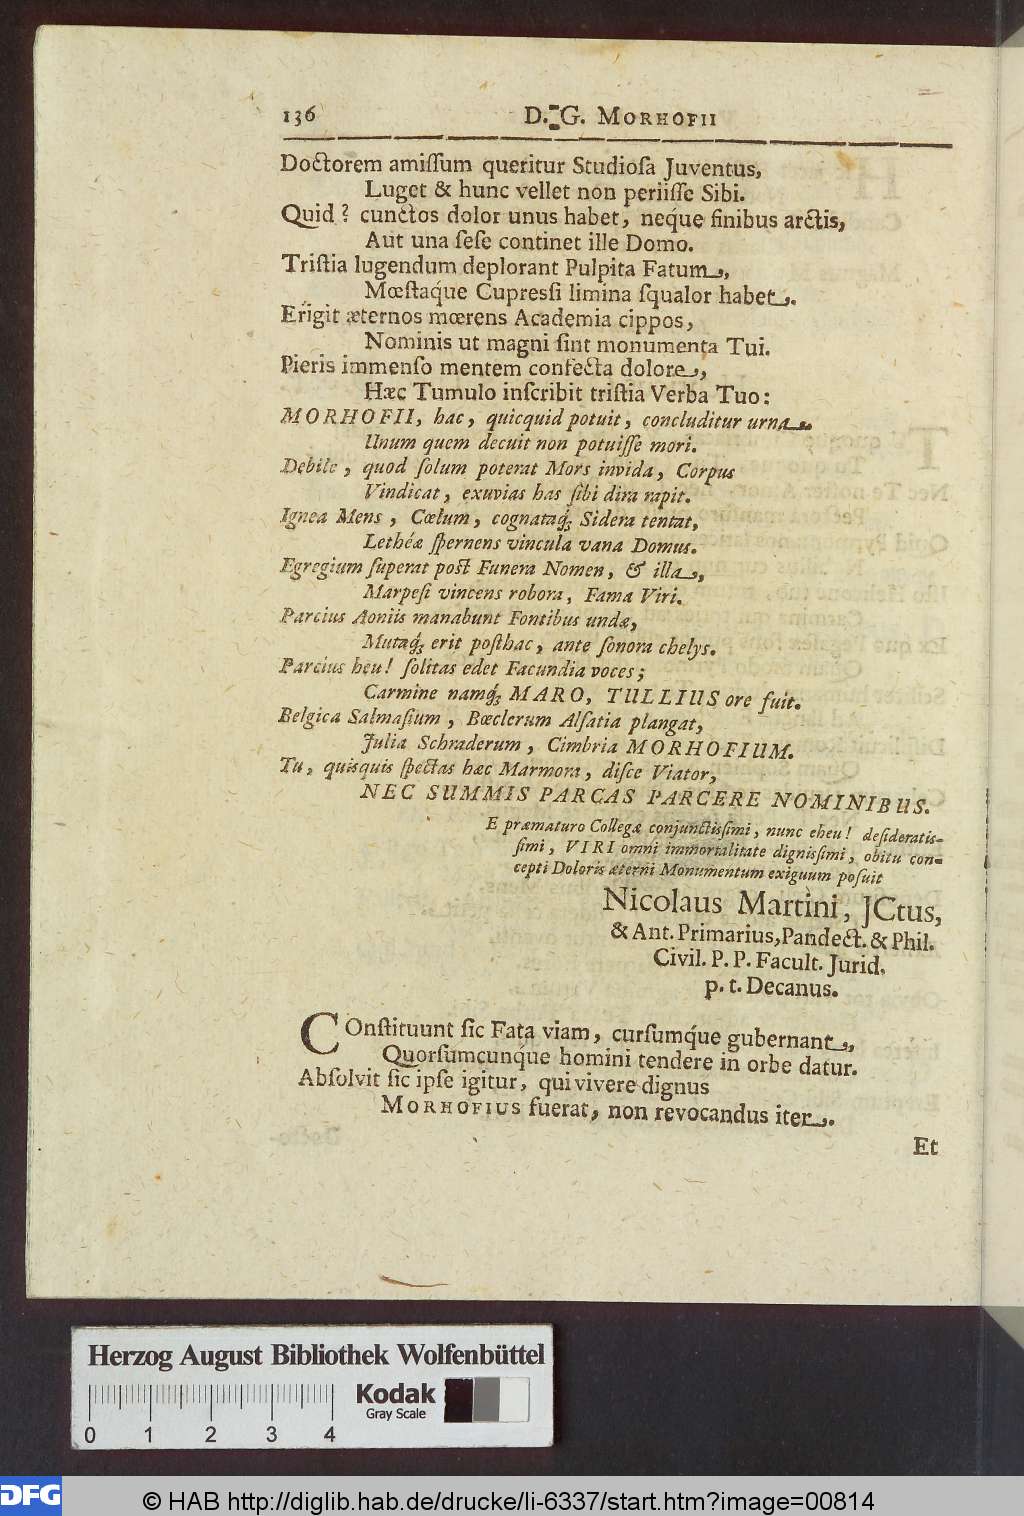 136 D. G. MORHOFII
Doctorem amiſſum queritur Studioſa Juventus,
Luget & hunc vellet non periiſſe Sibi.
Quid? cunctos dolor unus habet, neq́ue finibus arctis,
Aut una ſeſe continet ille Domo.
Triſtia lugendum deplorant Pulpita Fatum,
Mœſtaq́ue Cupreſſi limina ſqualor habet.
Erigit æternos mœrens Academia cippos,
Nominis ut magni ſint monumenta Tui.
Pieris immenſo mentem confecta dolore,
Hæc Tumulo inſcribit triſtia Verba Tuo:
MORHOFII, hac, quicquid potuit, concluditur urna.
Unum quem decuit non potuiſſe mori.
Debile, quod ſolum poterat Mors invida, Corpus
Vindicat, exuvias has ſibi dira rapit.
Ignea Mens, Cœlum, cognataq́; Sidera tentat,
Lethéæ ſpernens vincula vana Domus.
Egregium ſuperat poſt Funera Nomen, & illa,
Marpeſi vincens robora, Fama Viri.
Parcius Aoniis manabunt Fontibus undæ,
Mutaq́; erit poſthac, ante ſonora chelys.
Parcius heu! ſolitas edet Facundia voces;
Carmine namq́; MARO, TULLIUS ore fuit.
Belgica Salmaſium, Bœclerum Alſatia plangat,
Julia Schraderum, Cimbria MORHOFIUM.
Tu, quisquis ſpectas hæc Marmora, diſce Viator,
NEC SUMMIS PARCAS PARCERE NOMINIBUS.
E præmaturo Collegæ conjunctiſſimi, nunc eheu! deſideratiſ-
ſimi, VIRI omni immortalitate digniſſimi, obitu con-
cepti Doloris æterni Monumentum exiguum poſuit
Nicolaus Martini, JCtus,
& Ant. Primarius, Pandect. & Phil.
Civil. P. P. Facult. Jurid.
p. t. Decanus.
COnſtituunt ſic Fata viam, curſumq́ue gubernant,
Quorſumcunq́ue homini tendere in orbe datur.
Abſolvit ſic ipſe igitur, qui vivere dignus
MORHOFIUS fuerat, non revocandus iter.
Et
Herzog August Bibliothek Wolfenbüttel
Kodak
Gray Scale
0 1 2 3 4
DFG
© HAB http://diglib.hab.de/drucke/li-6337/start.htm?image=00814